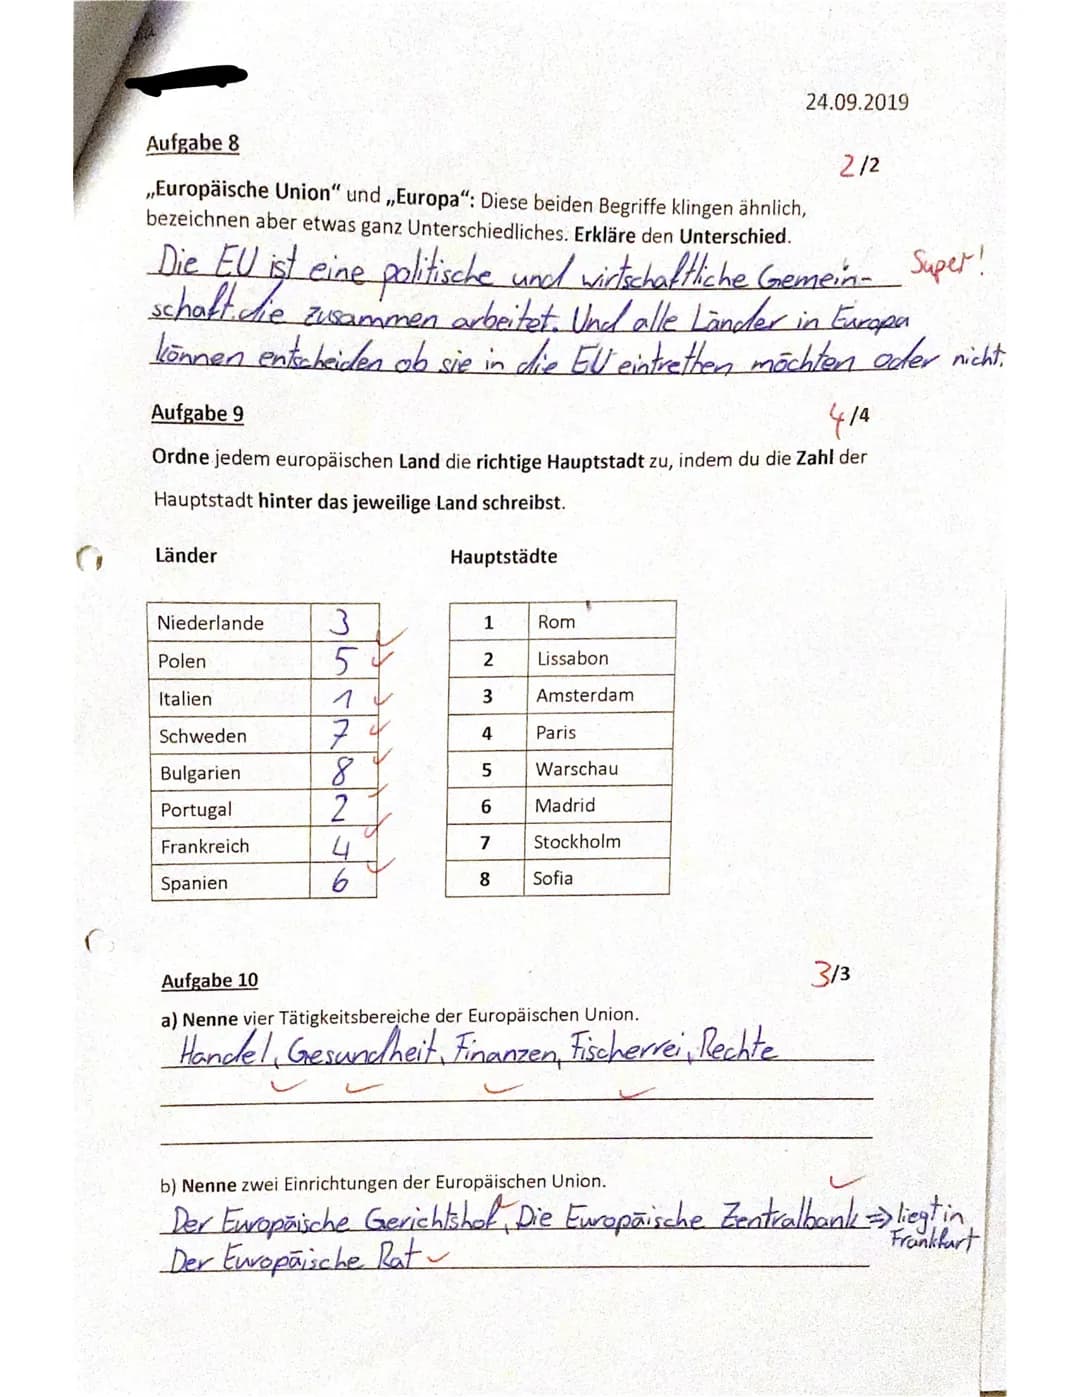 24.09.2019
Aufgabe 8
2/2
„Europäische Union“ und „Europa“: Diese beiden Begriffe klingen ähnlich,
bezeichnen aber etwas ganz Unterschiedliches. Erkläre den Unterschied.
Die EU ist eine politische und wirtschaftliche Gemein- Super!
schaft die zusammen arbeitet. Und alle Länder in Europa
können entscheiden ob sie in die EU eintrethen möchten oder nicht.
Aufgabe 9
4/4
Ordne jedem europäischen Land die richtige Hauptstadt zu, indem du die Zahl der
Hauptstadt hinter das jeweilige Land schreibst.
Länder Hauptstädte
Niederlande 3 1 Rom
Polen 5 2 Lissabon
Italien 1 3 Amsterdam
Schweden 7 4 Paris
Bulgarien 8 5 Warschau
Portugal 2 6 Madrid
Frankreich 4 7 Stockholm
Spanien 6 8 Sofia
Aufgabe 10
3/3
a) Nenne vier Tätigkeitsbereiche der Europäischen Union.
Handel, Gesundheit, Finanzen, Fischerrei, Rechte
b) Nenne zwei Einrichtungen der Europäischen Union.
Der Europäische Gerichtshof, Die Europäische Zentralbank => liegt in
Frankfurt
Der Europäische Rat